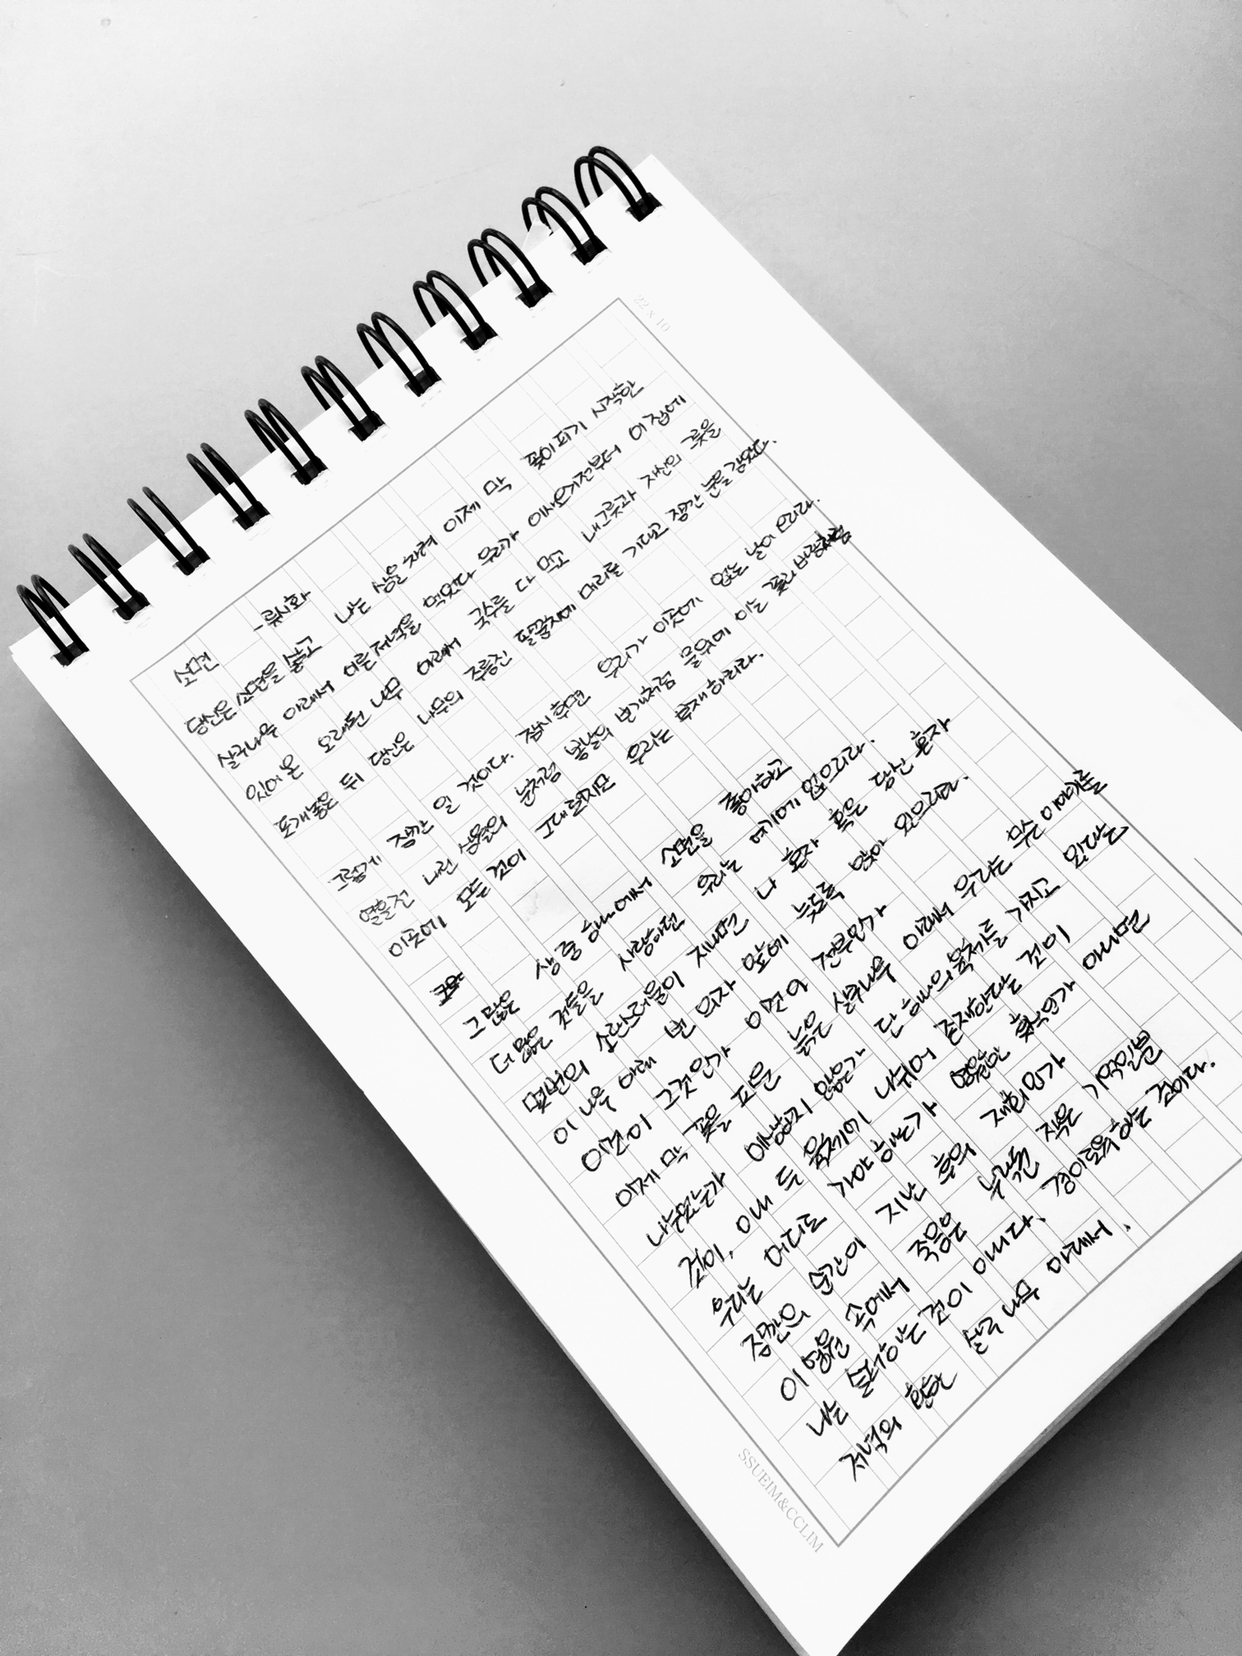 22 x 10
소면
-류시화
당신은 소면을 삶고 나는 상을 차려 이제 막 꽃이 피기 시작한
살구나무 아래서 이른 저녁을 먹었다 우리가 이사오기 전부터 이 집에
있어 온 오래된 나무 아래서 국수를 다 먹고 내 그릇과 자신의 그릇을
포개 놓은 뒤 당신은 나무의 주름진 팔꿈치에 머리를 기대고 잠깐 눈을 감았다.
그렇게 잠깐 일 것이다. 잠시 후면 우리가 이곳에 없는 날이 오리라.
열흘 전 내린 삼월의 눈처럼 봄날의 번개처럼 물 위에 이는 꽃과 바람처럼
이곳에 모든 것이 그대로지만 우리는 부재하리라.
그 많은 생 중 하나에서 소면을 좋아하고
더 많은 것들을 사랑하던 우리는 여기에 없으리라.
몇 번의 소란스러움이 지나면 나 혼자 혹은 당신 혼자
이 나무 아래 빈 의자 앞에 늦도록 앉아 있으리라.
이것이 그것인가 이것이 전부인가
이제 막 꽃을 피운 늙은 살구나무 아래서 우리는 무슨 이야기를
나누었는가 이상하지 않은가 단 하나의 육체를 가지고 있다는
것이, 아니 두 육체에 나뉘어 존재한다는 것이
우리는 어디로 가야 하는가 영원한 휴식인가 아니면
잠깐의 순간이 지난 후의 재회인가
이 영원 속에서 죽음은 누락된 작은 기억일 뿐
나는 슬퍼하는 것이 아니다. 경이로워하는 것이다.
저녁의 환한 살구나무 아래서.
SSUEIM&CCLIM